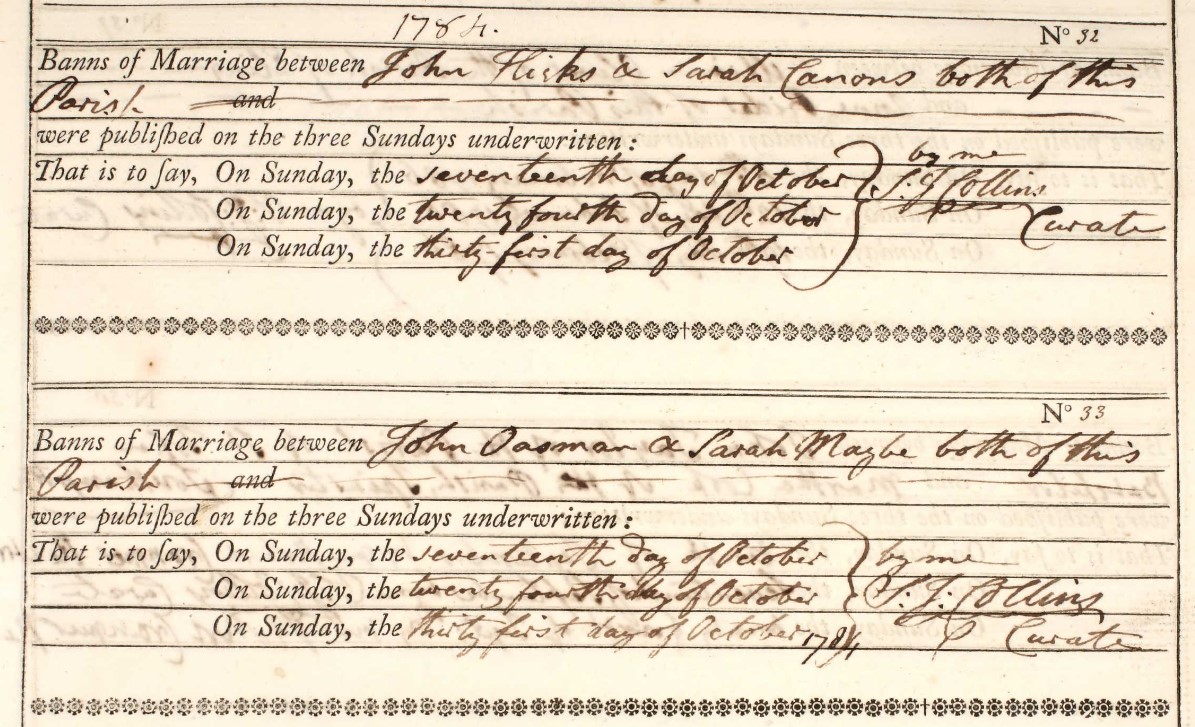 1784.
Nº 32
Banns of Marriage between John Hicks & Sarah Canons both of this
Parish and
were publiſhed on the three Sundays underwritten:
That is to ſay, On Sunday, the seventeenth day of October by me
On Sunday, the twenty fourth day of October Collins
On Sunday, the thirty-first day of October Curate
Nº 33
Banns of Marriage between John Oasman & Sarah Maybe both of this
Parish and
were publiſhed on the three Sundays underwritten:
That is to ſay, On Sunday, the seventeenth day of October by me
On Sunday, the twenty fourth day of October Collins
On Sunday, the thirty first day of October 1784 Curate